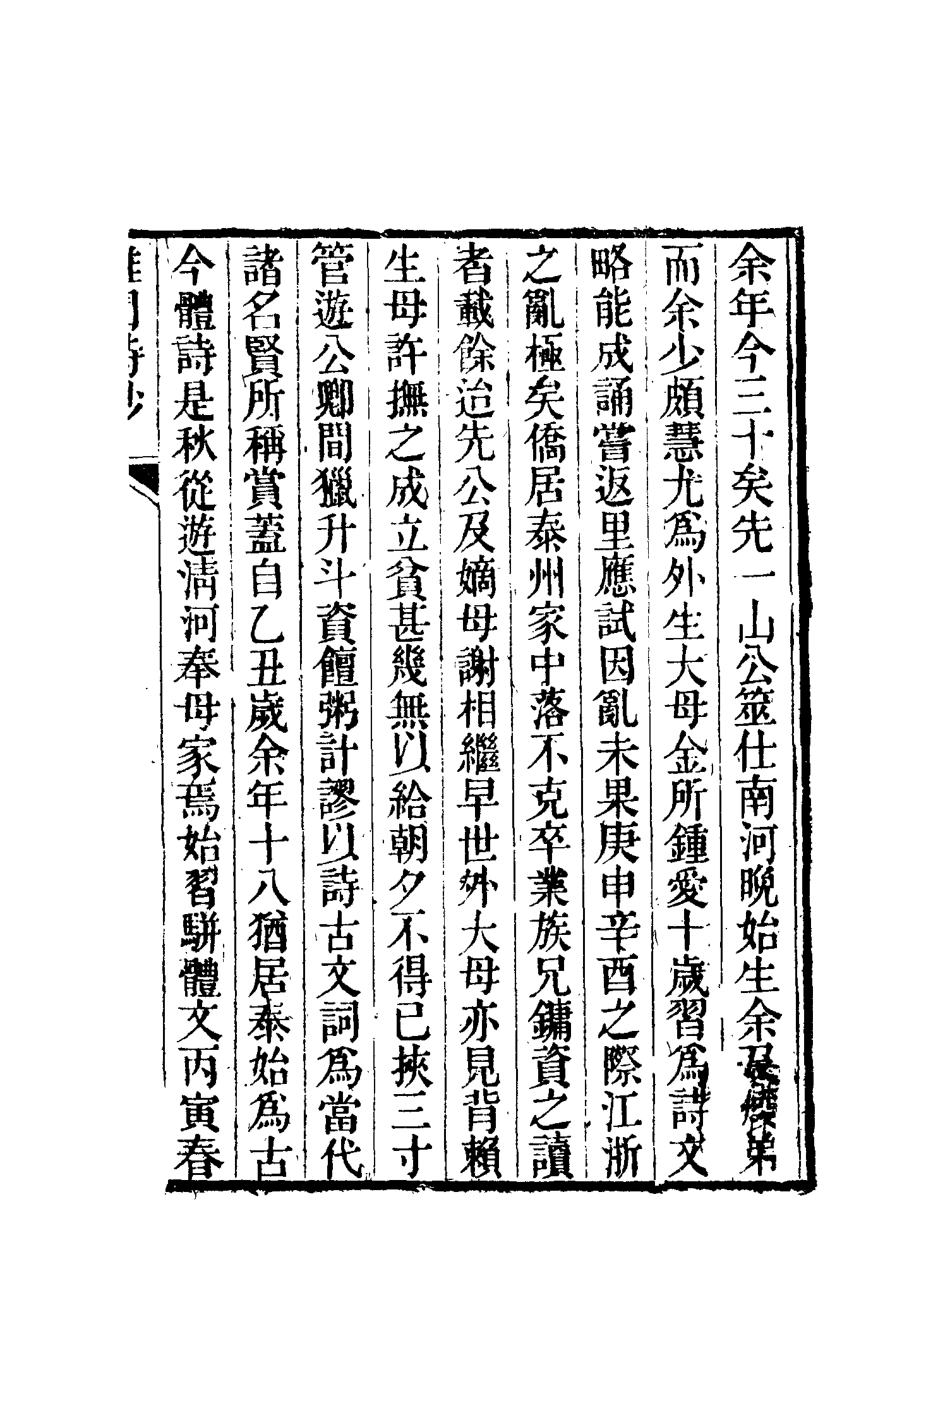 余年今三十矣先一山公筮仕南河晚始生余及弟
而余少頗慧尤爲外生大母金所鍾愛十歲習爲詩文
略能成誦嘗返里應試因亂未果庚申辛酉之際江浙
之亂極矣僑居泰州家中落不克卒業族兄鏞資之讀
者載餘迨先公及嫡母謝相繼早世外大母亦見背賴
生母許撫之成立貧甚幾無以給朝夕不得已挾三寸
管遊公卿間獵升斗資饘粥計謬以詩古文詞爲當代
諸名賢所稱賞蓋自乙丑歲余年十八猶居泰始爲古
今體詩是秋從遊清河奉母家焉始習駢體文丙寅春